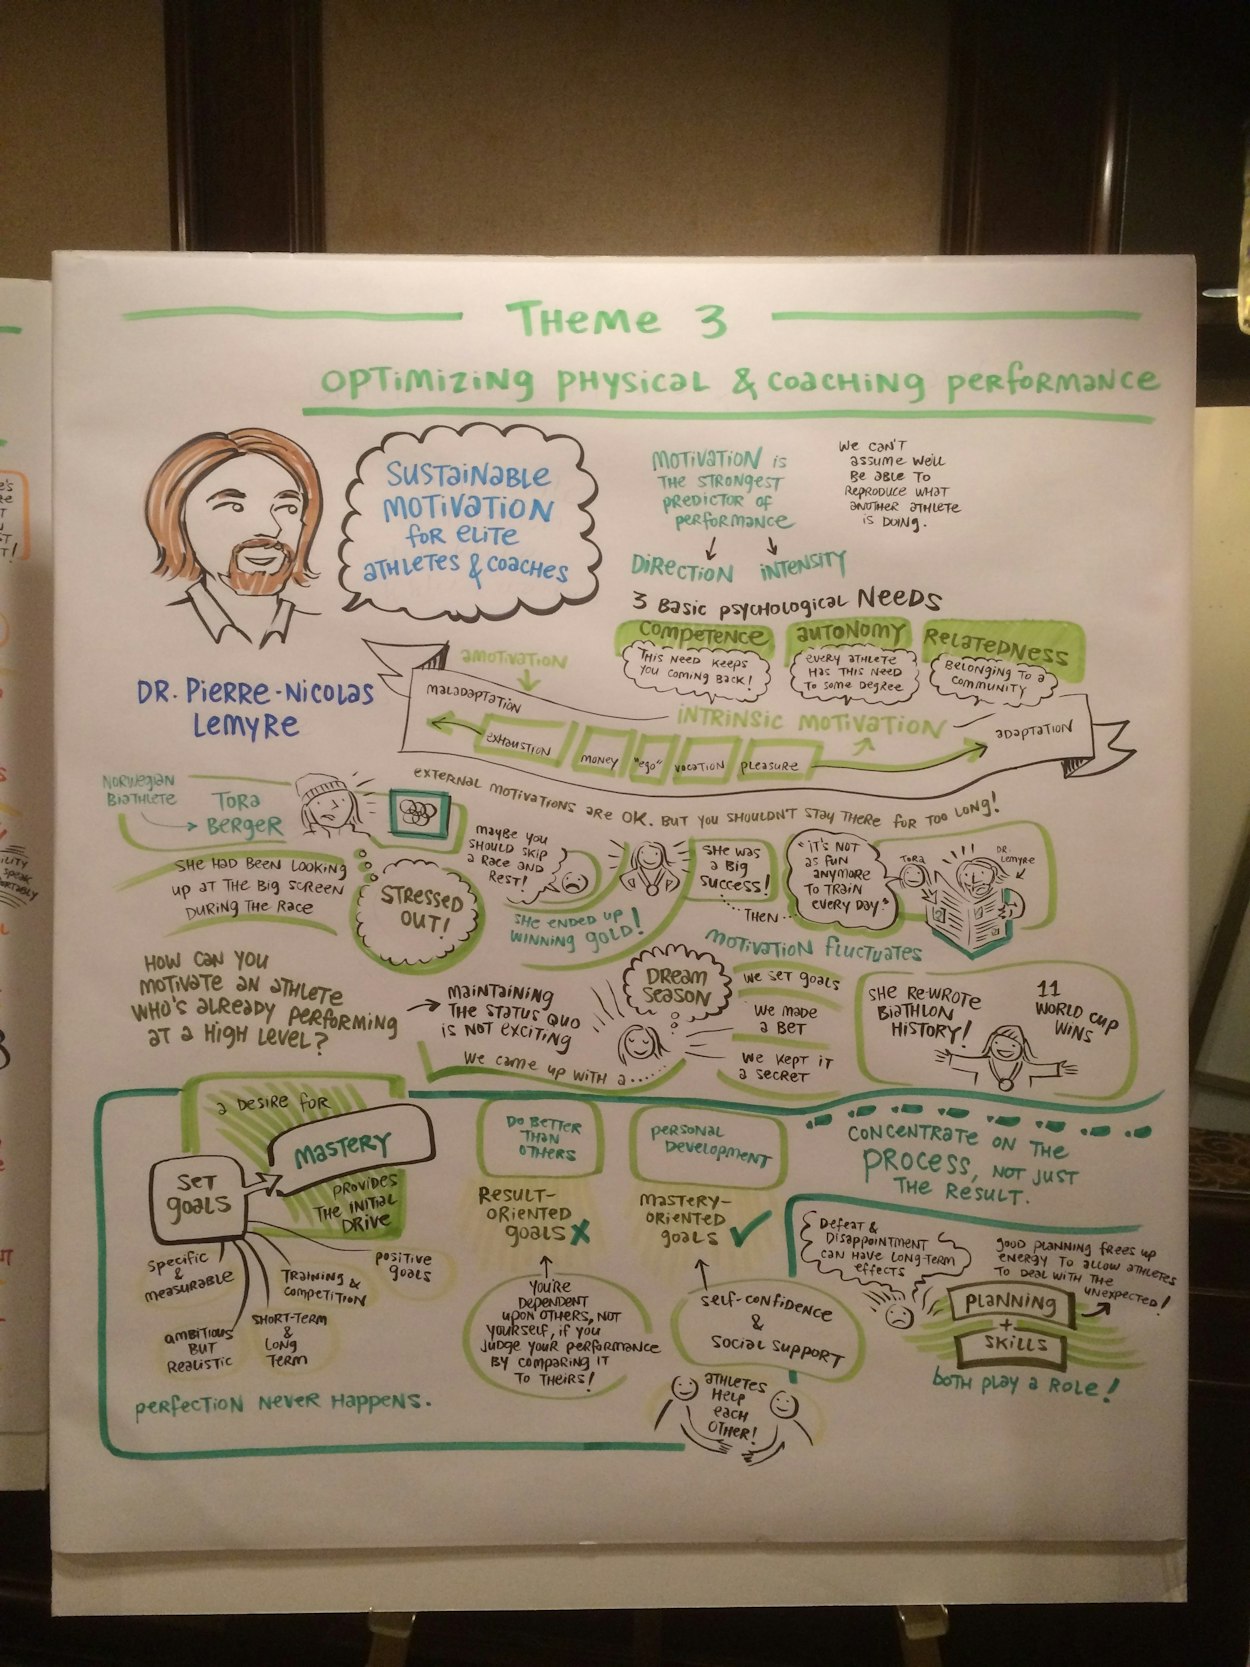 THEME 3
OPTIMIZING PHYSICAL & COACHING PERFORMANCE
SUSTAINABLE
MOTIVATION
FOR ELITE
ATHLETES & COACHES
DR. PIERRE-NICOLAS
LEMYRE
MOTIVATION IS
THE STRONGEST
PREDICTOR OF
PERFORMANCE
DIRECTION INTENSITY
WE CAN'T
ASSUME WE'LL
BE ABLE TO
REPRODUCE WHAT
ANOTHER ATHLETE
IS DOING.
3 BASIC PSYCHOLOGICAL NEEDS
COMPETENCE
THIS NEED KEEPS
YOU COMING BACK!
AUTONOMY
EVERY ATHLETE
HAS THIS NEED
TO SOME DEGREE
RELATEDNESS
BELONGING TO A
COMMUNITY
AMOTIVATION
MALADAPTATION
INTRINSIC MOTIVATION
ADAPTATION
EXHAUSTION
MONEY
"EGO"
VOCATION
PLEASURE
EXTERNAL MOTIVATIONS ARE OK. BUT YOU SHOULDN'T STAY THERE FOR TOO LONG!
NORWEGIAN
BIATHLETE
TORA
BERGER
SHE HAD BEEN LOOKING
UP AT THE BIG SCREEN
DURING THE RACE
STRESSED
OUT!
MAYBE YOU
SHOULD SKIP
A RACE AND
REST!
SHE ENDED UP
WINNING GOLD!
SHE WAS
A BIG
SUCCESS!
THEN
"IT'S NOT
AS FUN
ANYMORE
TO TRAIN
EVERY DAY"
TORA
DR.
LEMYRE
MOTIVATION FLUCTUATES
HOW CAN YOU
MOTIVATE AN ATHLETE
WHO'S ALREADY PERFORMING
AT A HIGH LEVEL?
MAINTAINING
THE STATUS QUO
IS NOT EXCITING
WE CAME UP WITH A.....
DREAM
SEASON
WE SET GOALS
WE MADE
A BET
WE KEPT IT
A SECRET
SHE RE-WROTE
BIATHLON
HISTORY!
11
WORLD CUP
WINS
A DESIRE FOR
MASTERY
PROVIDES
THE INITIAL
DRIVE
SET
GOALS
SPECIFIC
&
MEASURABLE
AMBITIOUS
BUT
REALISTIC
SHORT-TERM
&
LONG
TERM
TRAINING &
COMPETITION
POSITIVE
GOALS
PERFECTION NEVER HAPPENS.
DO BETTER
THAN
OTHERS
RESULT-
ORIENTED
GOALS
YOU'RE
DEPENDENT
UPON OTHERS, NOT
YOURSELF, IF YOU
JUDGE YOUR PERFORMANCE
BY COMPARING IT
TO THEIRS!
PERSONAL
DEVELOPMENT
MASTERY-
ORIENTED
GOALS
SELF-CONFIDENCE
&
SOCIAL SUPPORT
ATHLETES
HELP
EACH
OTHER!
CONCENTRATE ON THE
PROCESS, NOT JUST
THE RESULT.
DEFEAT &
DISAPPOINTMENT
CAN HAVE LONG-TERM
EFFECTS
GOOD PLANNING FREES UP
ENERGY TO ALLOW ATHLETES
TO DEAL WITH THE
UNEXPECTED!
PLANNING
+
SKILLS
BOTH PLAY A ROLE!